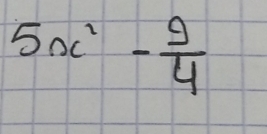 5x² - 9/4